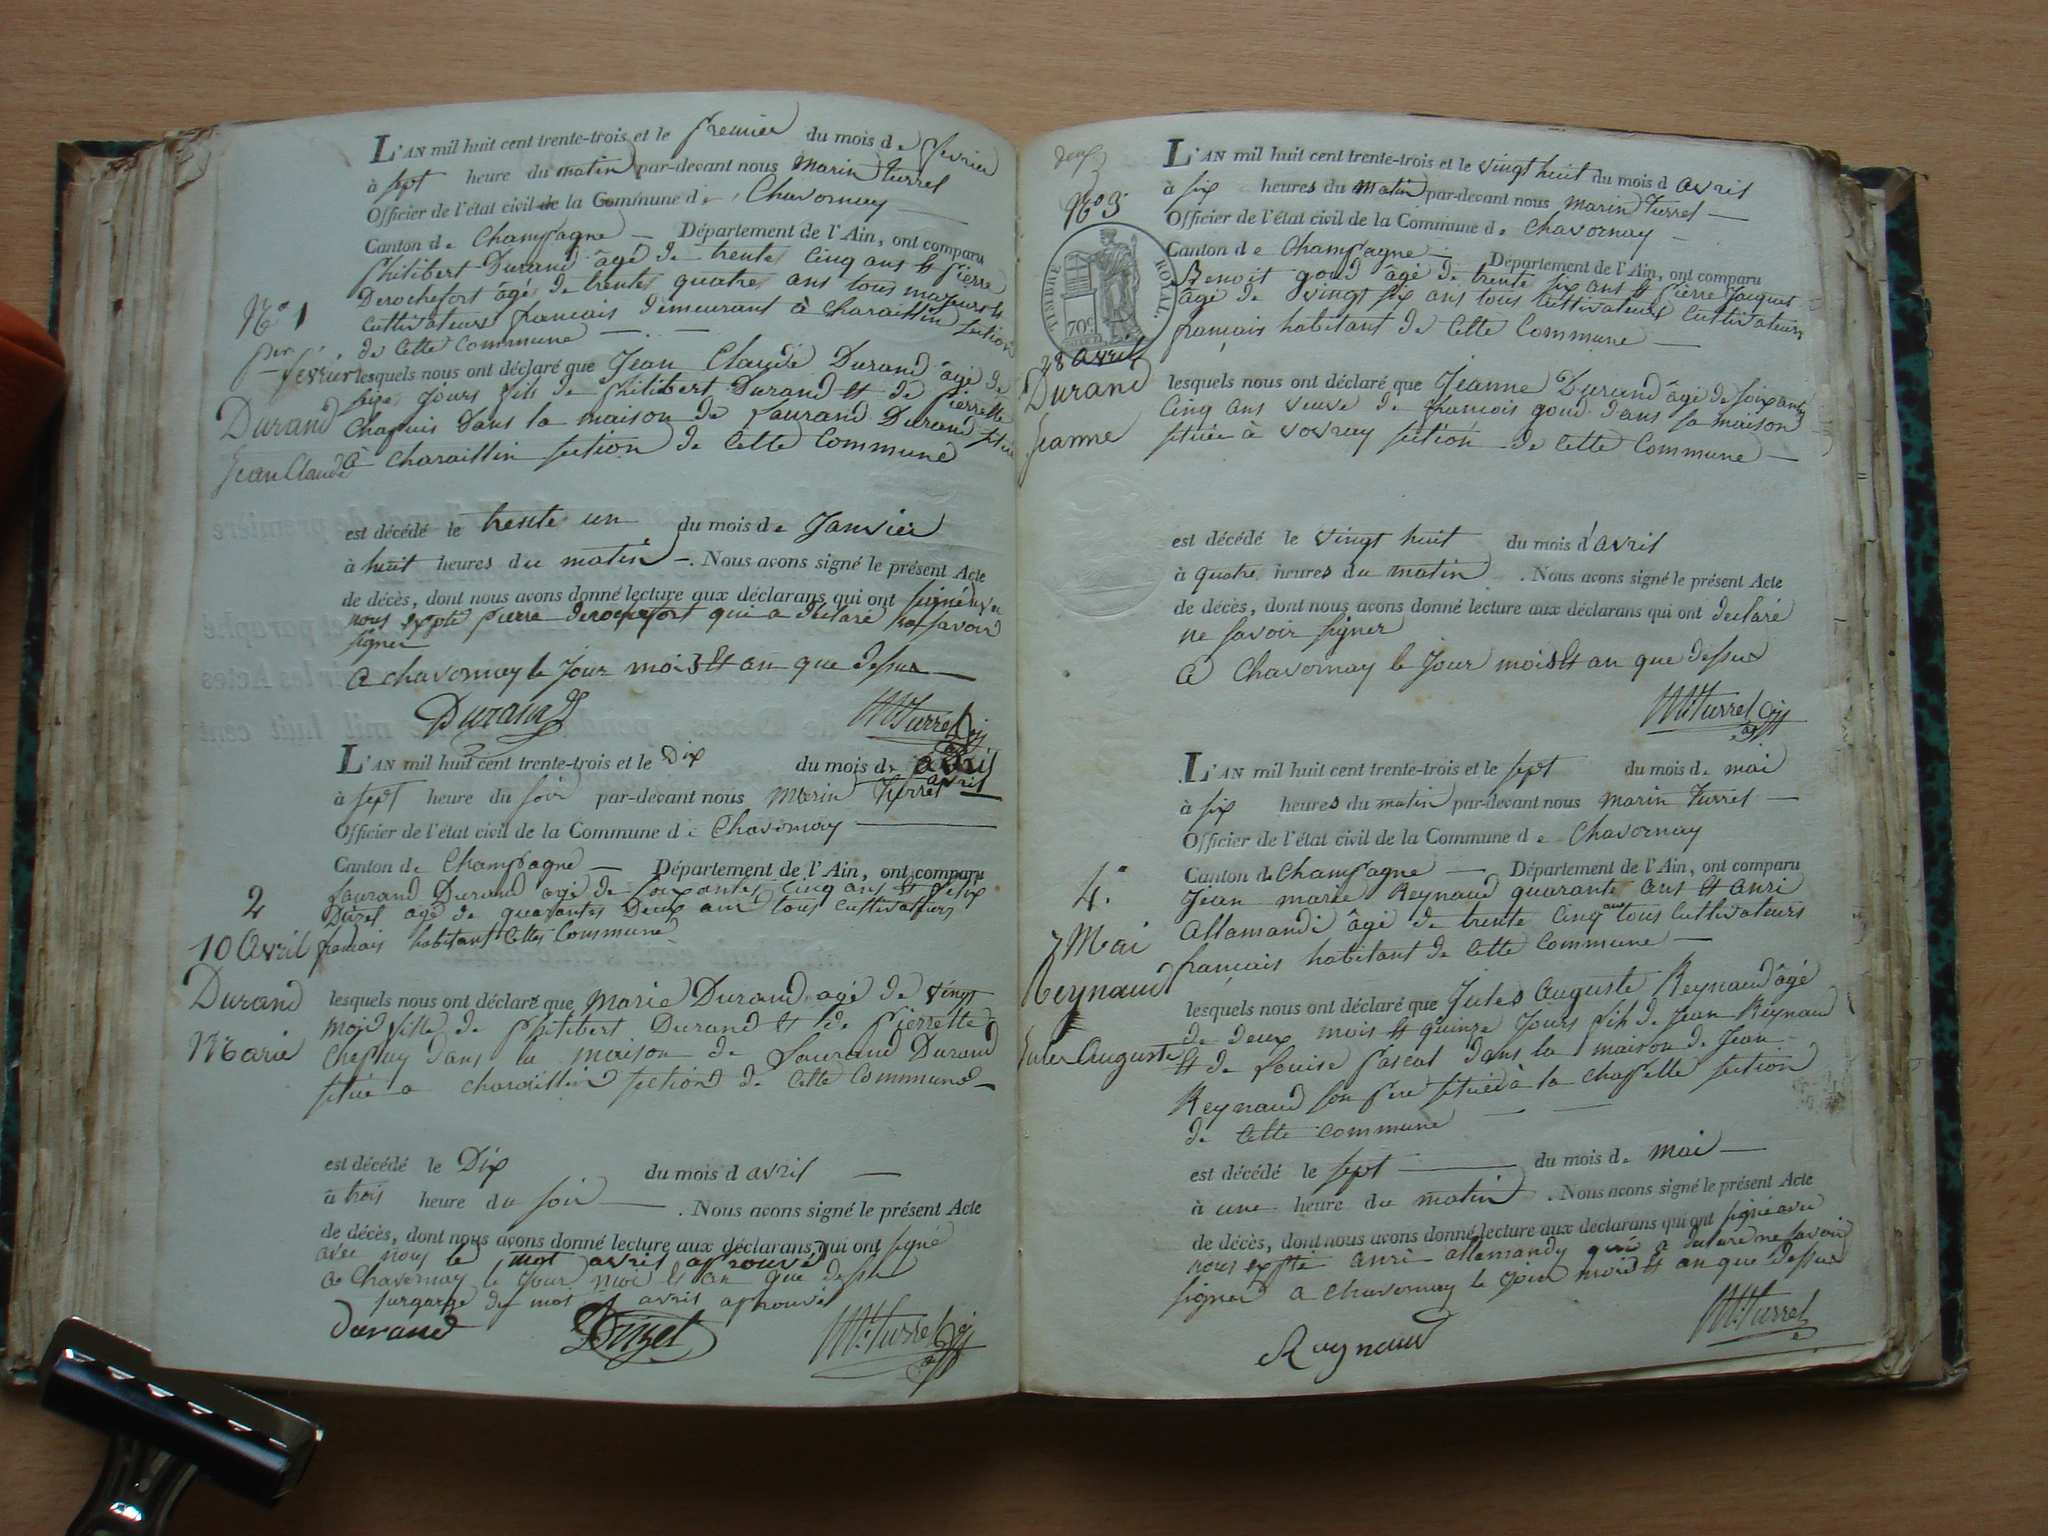 L'AN mil huit cent trente-trois et le premier du mois de fevrier
à sept heure du matin par-devant nous Marin turrel
Officier de l'état civil de la Commune de Chavornay
Canton de Champagne Département de l'Ain, ont comparu
philibert Durand âgé de trente cinq ans et pierre
Derochefort âgé de trente quatre ans tous majeurs et
cultivateurs francais demeurant à charaillin section
de cette commune
N° 1
fevrier
Durand
Jean Claude
lesquels nous ont déclaré que Jean Claude Durand âgé de
jours fils de philibert Durand et de pierrette
Chapuis dans la maison de Laurand Durand
à charaillin section de cette commune
est décédé le trente un du mois de Janvier
à huit heures du matin. Nous avons signé le présent Acte
de décès, dont nous avons donné lecture aux déclarans qui ont signé
nous expté pierre derochefort qui a déclaré ne savoir
signer
a chavornay le Jour mois et an que dessus
Durand
M. Turrel
L'AN mil huit cent trente-trois et le Dix du mois de avril
avril
à sept heure du soir par-devant nous Marin Turrel
Officier de l'état civil de la Commune de Chavornay
Canton de Champagne Département de l'Ain, ont comparu
Laurand Durand agé de soixantes cinq ans et felix
Duzel agé de quarantes Deux ans tous cultivateurs
francais habitant Cettes Commune
2
10 Avril
Durand
Marie
lesquels nous ont déclaré que Marie Durand agé de vingt
mois fille de philibert Durand et de pierrette
Chapuy dans la maison de Laurand Durand
située a charaillin section de cette commune
est décédé le Dix du mois d avril
à trois heure du soir. Nous avons signé le présent Acte
de décès, dont nous avons donné lecture aux déclarans qui ont signé
avec nous le mot avril aprouvé
a Chavornay le Jour moi et an que dessu
surgarge du mot avril aprouvé
durand
Duzel
M. Turrel
N° 3
TIMBRE ROYAL.
70c
28 avril
Durand
Jeanne
L'AN mil huit cent trente-trois et le vingt huit du mois d avril
à six heures du matin par-devant nous Marin Turrel
Officier de l'état civil de la Commune de Chavornay
Canton de Champagne Département de l'Ain, ont comparu
Benoit goud âgé de trente six ans et pierre Jacquet
âgé de vingt six ans tous cultivateurs cultivateurs
français habitant de Cette Commune
lesquels nous ont déclaré que Jeanne Durand âgé de soixante
cinq ans veuve de francois goud dans sa maison
située à vovray section de Cette Commune
est décédé le vingt huit du mois d'avril
à quatre heures du matin. Nous avons signé le présent Acte
de décès, dont nous avons donné lecture aux déclarans qui ont declaré
ne savoir signer
A Chavornay le Jour mois et an que dessus
M. Turrel
L'AN mil huit cent trente-trois et le sept du mois de mai
à six heures du matin par-devant nous Marin Turrel
Officier de l'état civil de la Commune de Chavornay
Canton de Champagne Département de l'Ain, ont comparu
Jean marie Reynaud quarante ans et anri
Allamandi âgé de trente Cinq ans tous Cultivateurs
français habitant de Cette Commune
4.
7 Mai
Reynaud
Jules Auguste
lesquels nous ont déclaré que Jules Auguste Reynaud âgé
de deux mois et quinze Jours fils de Jean Reynaud
et de Louise pascal dans la maison de Jean
Reynaud son pere située à la chapelle section
de cette commune
est décédé le sept du mois de mai
à une heure du matin. Nous avons signé le présent Acte
de décès, dont nous avons donné lecture aux déclarans qui ont signé avec
nous expté anri allemandy qui a declaré ne savoir
signer a chavornay le jour mois et an que dessus
Reynaud
M. Turrel